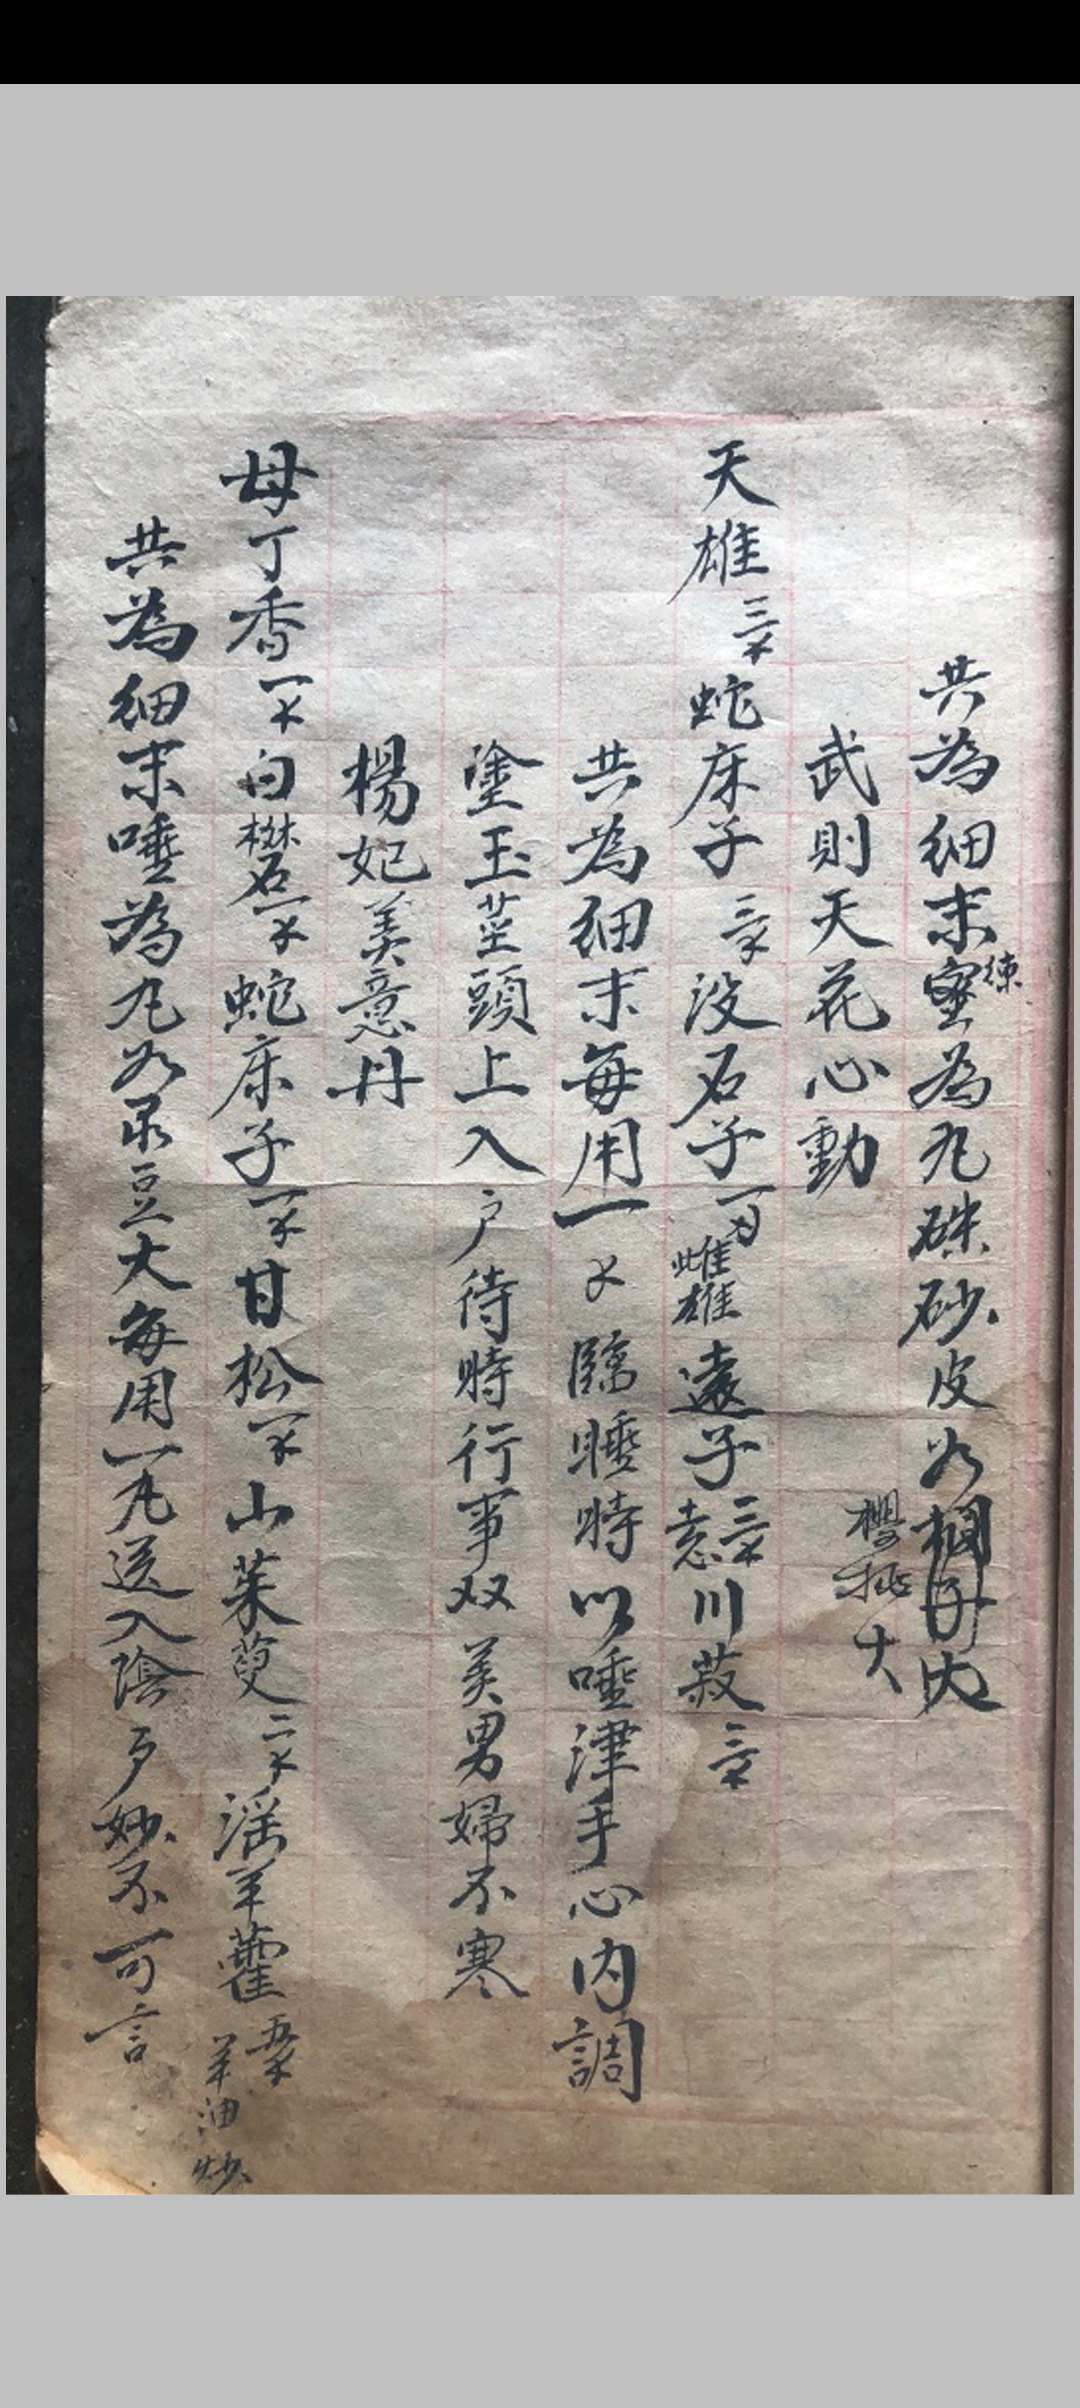 共為細末煉蜜為丸硃砂皮如桐子大
櫻桃大
武則天花心動
天雄三錢蛇床子三錢没石子一方雌雄遠子三錢志川菽三錢
共為細末每用一錢臨睡時以唾津手心内調
塗玉莖頭上入户待時行事双美男婦不寒
楊妃美意丹
母丁香一錢白礬一錢蛇床子一錢甘松一錢山茱萸二錢滛羊藿五錢羊油炒
共為細末唾為丸如菉豆大每用一丸送入陰户妙不可言